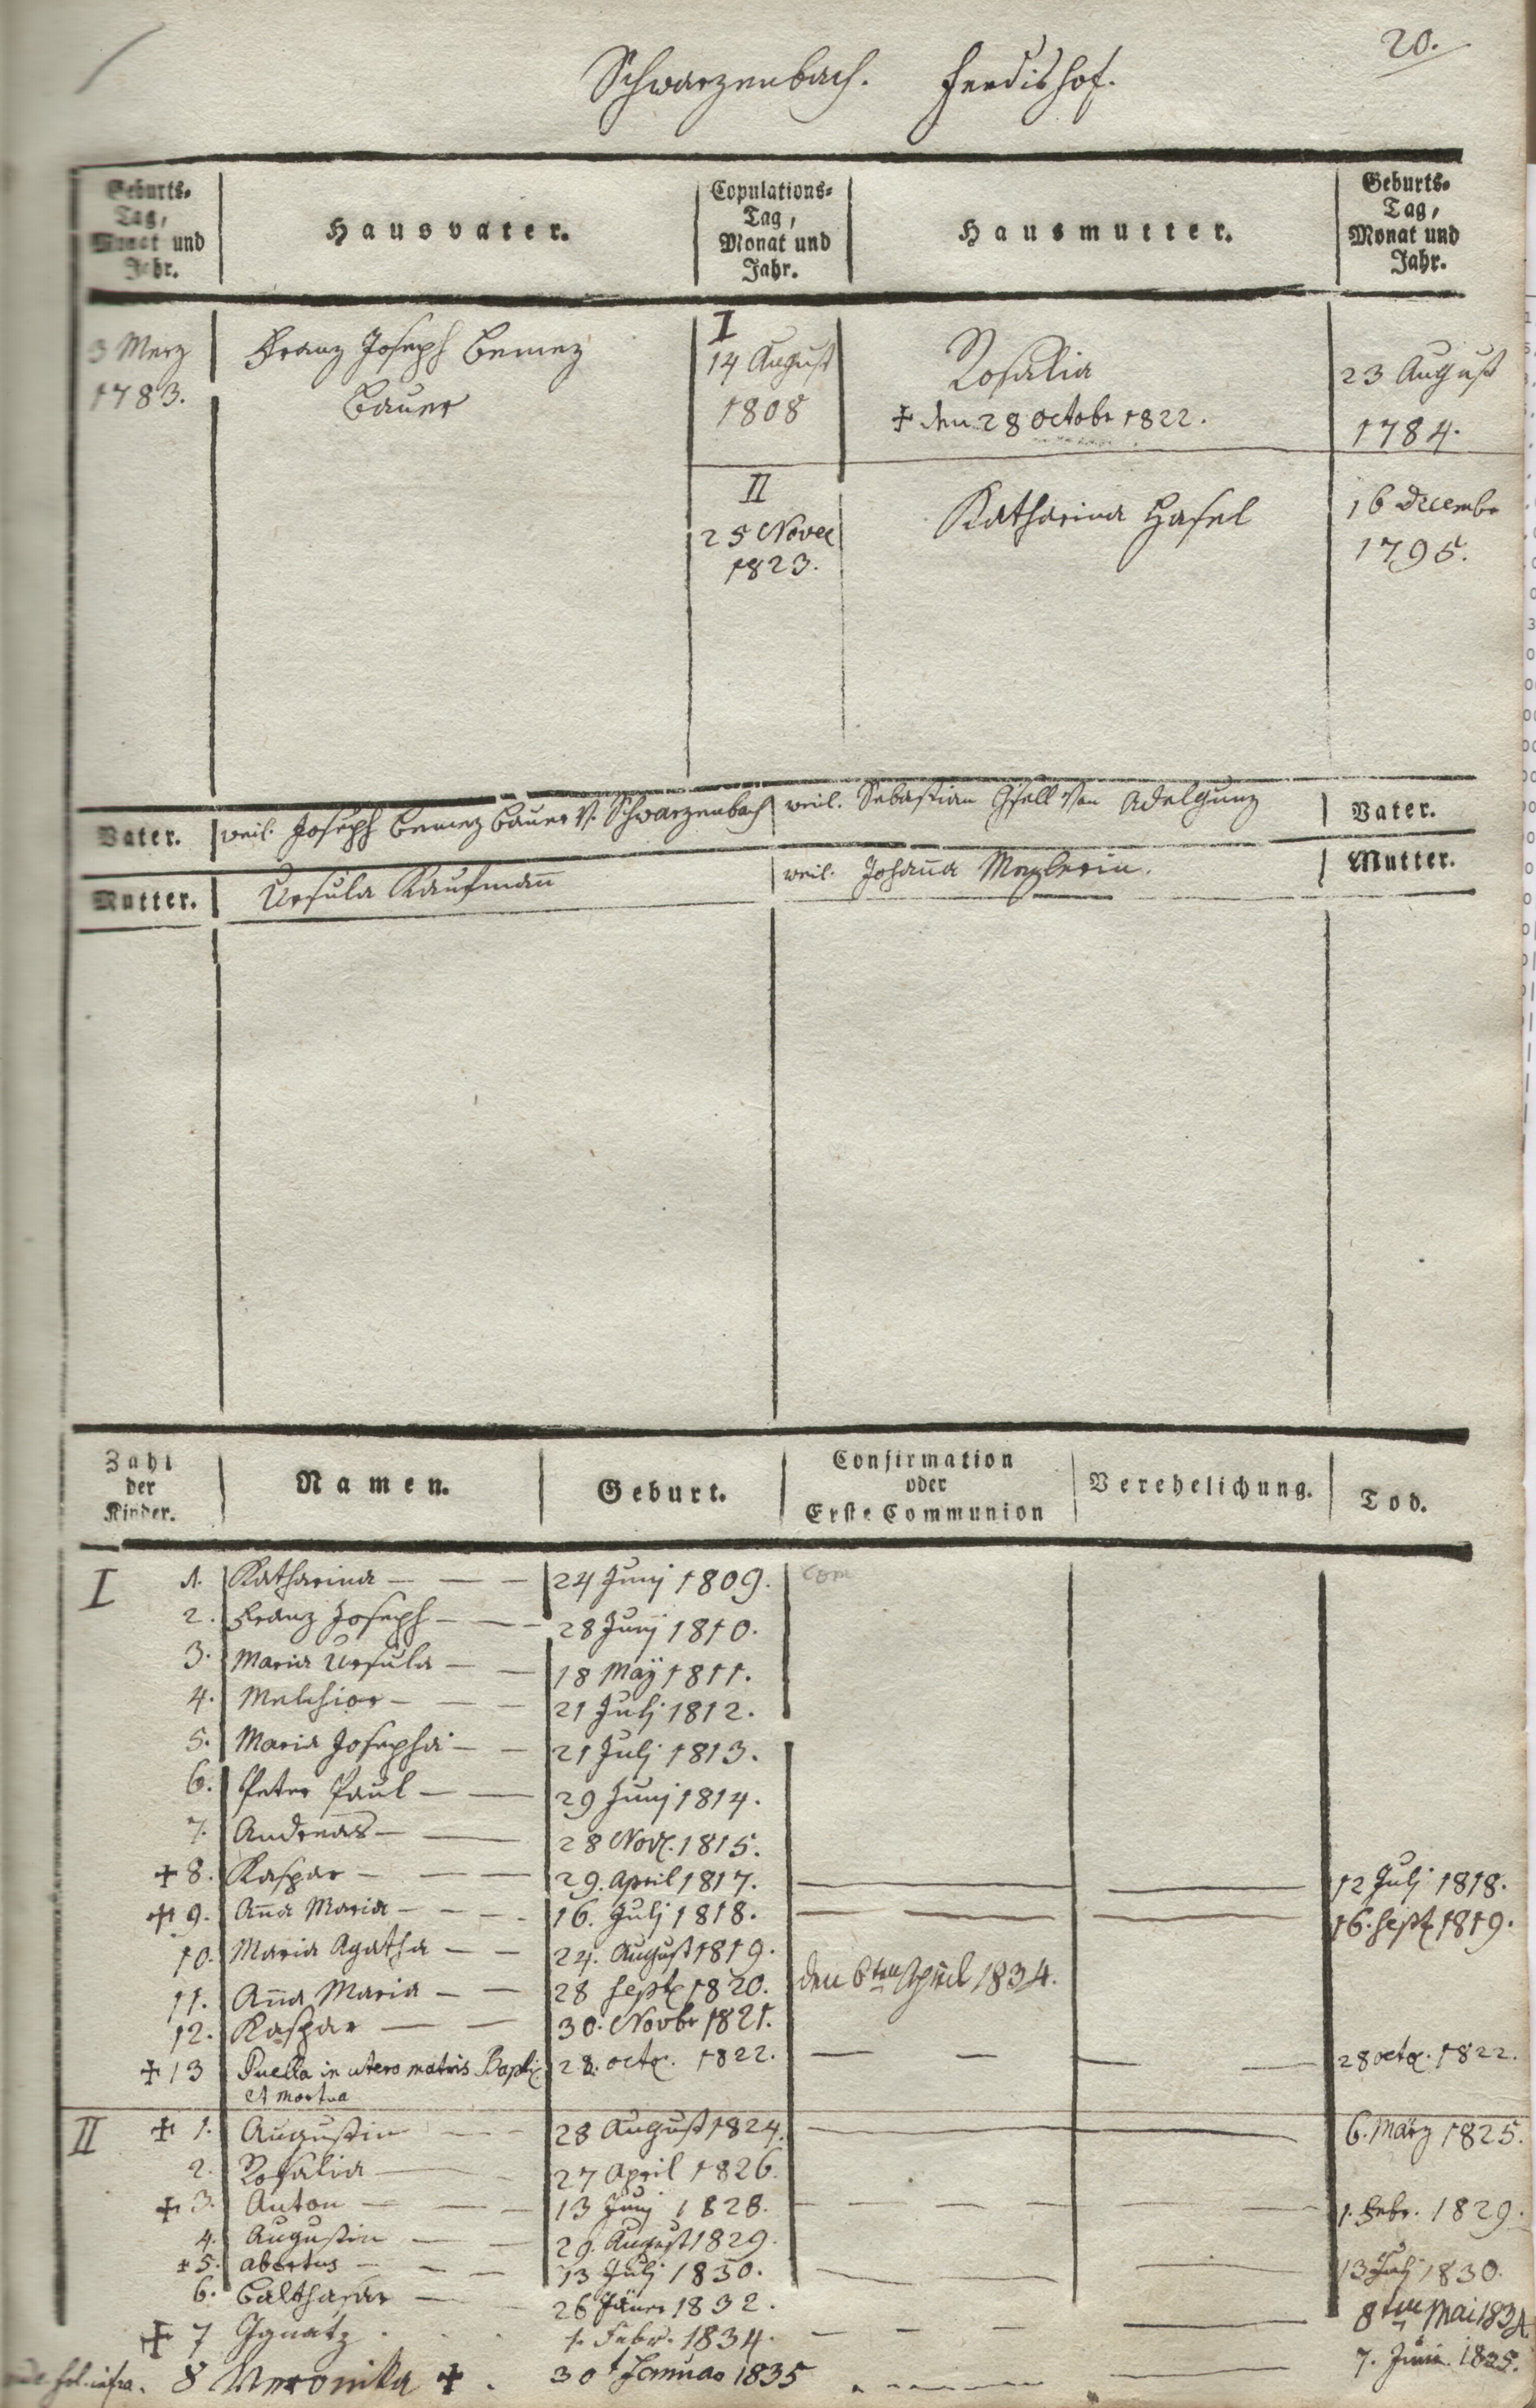 20.
Schwarzenbach. Ferdishof.
Geburts-
Tag,
Monat und
Jahr.
Hausvater.
Copulations-
Tag,
Monat und
Jahr.
Hausmutter.
Geburts-
Tag,
Monat und
Jahr.
3 Merz
1783.
Franz Joseph
Bauer
I
14 August
1808
Rosalia
✝ den 28 Octobr 1822.
23 August
1784.
II
25 Nove
1823.
Katharina Hasel
16 Decembr
1795.
Vater.
weil. Joseph Bauer v. Schwarzenbach
weil. Sebastian von Adelgunz
Vater.
Mutter.
Ursula Kaufmañ
weil. Johaña
Mutter.
Zahl
der
Kinder.
Namen.
Geburt.
Confirmation
oder
Erste Communion
Verehelichung.
Tod.
I 1. Katharina — — — 24 Junj 1809. Com
2. Franz Joseph — — — 28 Junj 1810.
3. Maria Ursula — — 18 Maÿ 1811.
4. Melchior — — — 21 Julj 1812.
5. Maria Josepha — — 21 Julj 1813.
6. Peter Paul — — 29 Junj 1814.
7. Andreas — — 28 Nov. 1815.
✝ 8. Kaspar — — — 29. April 1817. 12 Julj 1818.
✝ 9. Aña Maria — — — 16. Julj 1818. 16. Sept 1819.
10. Maria Agatha — — 24. August 1819.
11. Aña Maria — — 28 Sept 1820. den 6ten April 1834.
12. Kaspar — — 30. Novbr 1821.
✝ 13 Puella in utero matris Bapt 28. octr. 1822. 28 octr. 1822.
et mortua
II ✝ 1. Augustin — — 28 August 1824. 6. März 1825.
2. Rosalia — 27 April 1826.
✝ 3. Anton — — — 13 Junj 1828. 1. Febr. 1829.
4. Augustin — — 29. August 1829.
✝ 5. abortus — — — 13 Julj 1830. 13 Julj 1830.
6. Balthasar — 26 Jäner 1832.
✝ 7 Ignatz . . . 1. Febr. 1834. 8ten Mai 1834
fol. infra. 8 Veronika ✝ . 30t Januar 1835 7. Juni 1835.